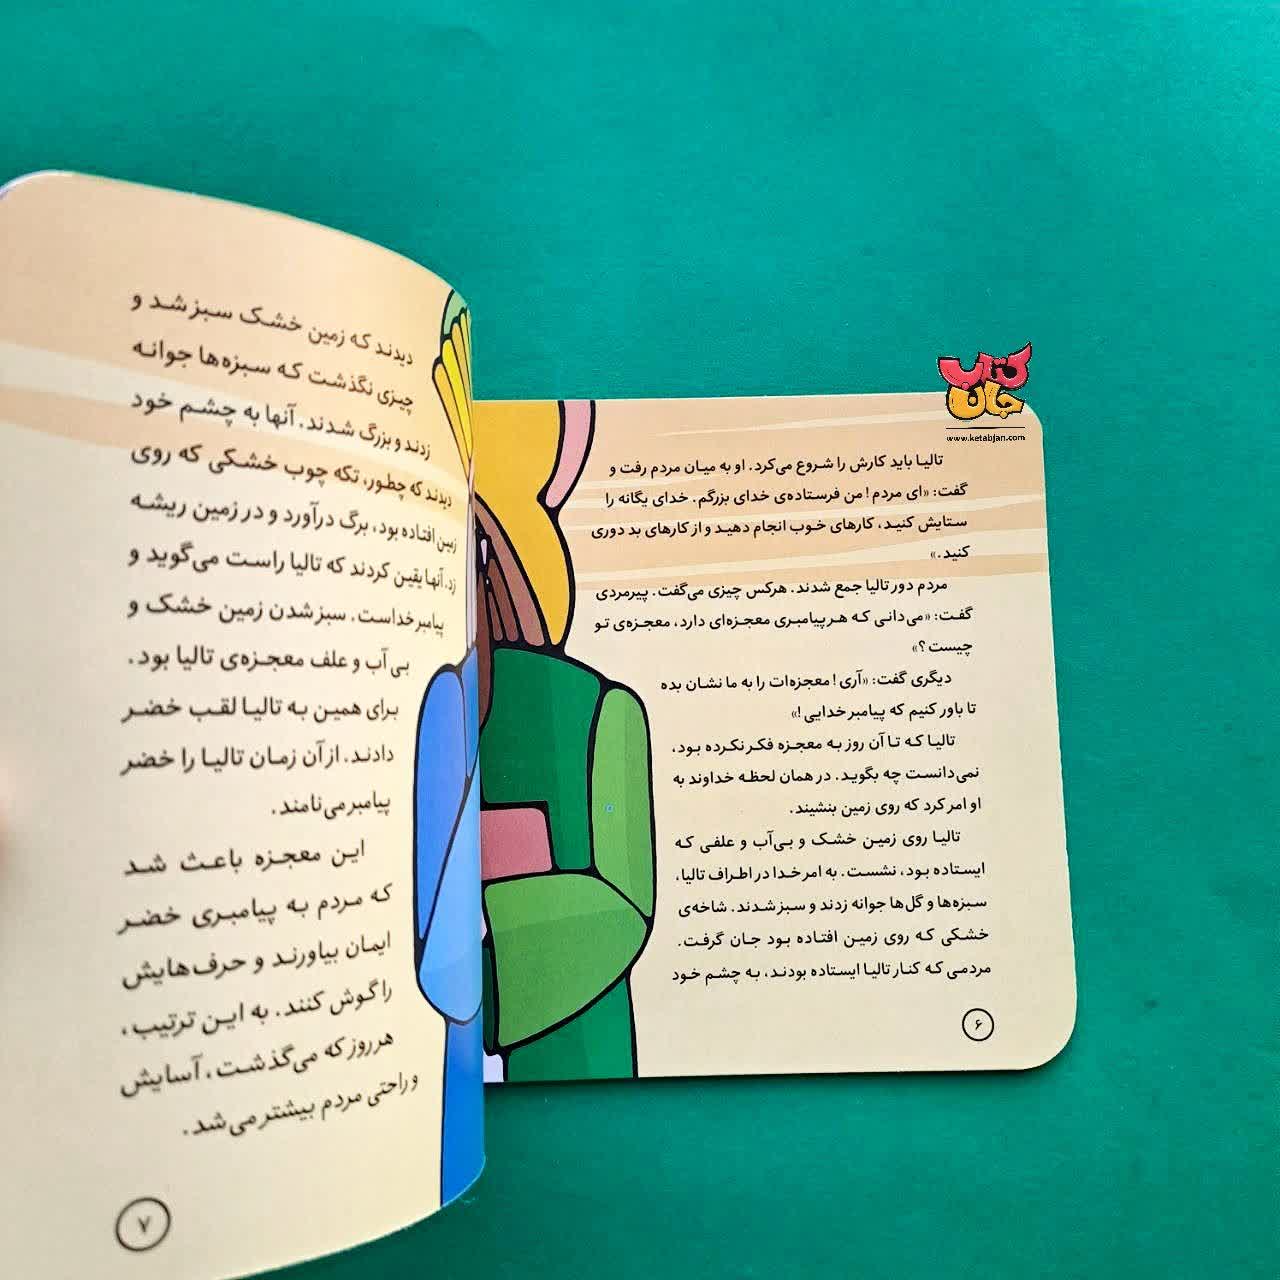 کتاب
جان
www.ketabjan.com
تالیا باید کارش را شروع می‌کرد. او به میان مردم رفت و
گفت: «ای مردم! من فرستاده‌ی خدای بزرگم. خدای یگانه را
ستایش کنید، کارهای خوب انجام دهید و از کارهای بد دوری
کنید.»
مردم دور تالیا جمع شدند. هرکس چیزی می‌گفت. پیرمردی
گفت: «می‌دانی که هر پیامبری معجزه‌ای دارد، معجزه‌ی تو
چیست؟»
دیگری گفت: «آری! معجزه‌ات را به ما نشان بده
تا باور کنیم که پیامبر خدایی!»
تالیا که تا آن روز به معجزه فکر نکرده بود،
نمی‌دانست چه بگوید. در همان لحظه خداوند به
او امر کرد که روی زمین بنشیند.
تالیا روی زمین خشک و بی‌آب و علفی که
ایستاده بود، نشست. به امر خدا در اطراف تالیا،
سبزه‌ها و گل‌ها جوانه زدند و سبز شدند. شاخه‌ی
خشکی که روی زمین افتاده بود جان گرفت.
مردمی که کنار تالیا ایستاده بودند، به چشم خود
۶
دیدند که زمین خشک سبز شد و
چیزی نگذشت که سبزه‌ها جوانه
زدند و بزرگ شدند. آنها به چشم خود
دیدند که چطور، تکه چوب خشکی که روی
زمین افتاده بود، برگ درآورد و در زمین ریشه
زد. آنها یقین کردند که تالیا راست می‌گوید و
پیامبر خداست. سبز شدن زمین خشک و
بی آب و علف معجزه‌ی تالیا بود.
برای همین به تالیا لقب خضر
دادند. از آن زمان تالیا را خضر
پیامبر می‌نامند.
این معجزه باعث شد
که مردم به پیامبری خضر
ایمان بیاورند و حرف‌هایش
را گوش کنند. به این ترتیب،
هر روز که می‌گذشت، آسایش
و راحتی مردم بیشتر می‌شد.
۷